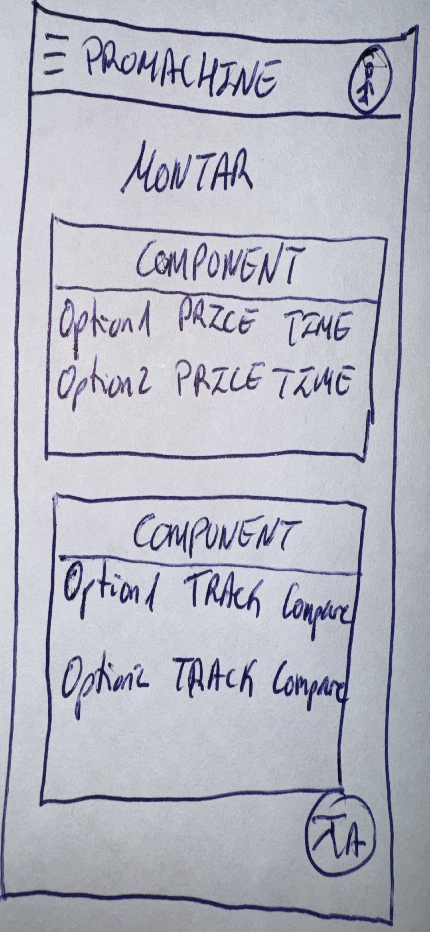 PROMACHINE
MONTAR
COMPONENT
Option1 PRICE TIME
Option2 PRICE TIME
COMPONENT
Option1 TRACK Compare
Option2 TRACK Compare
IA